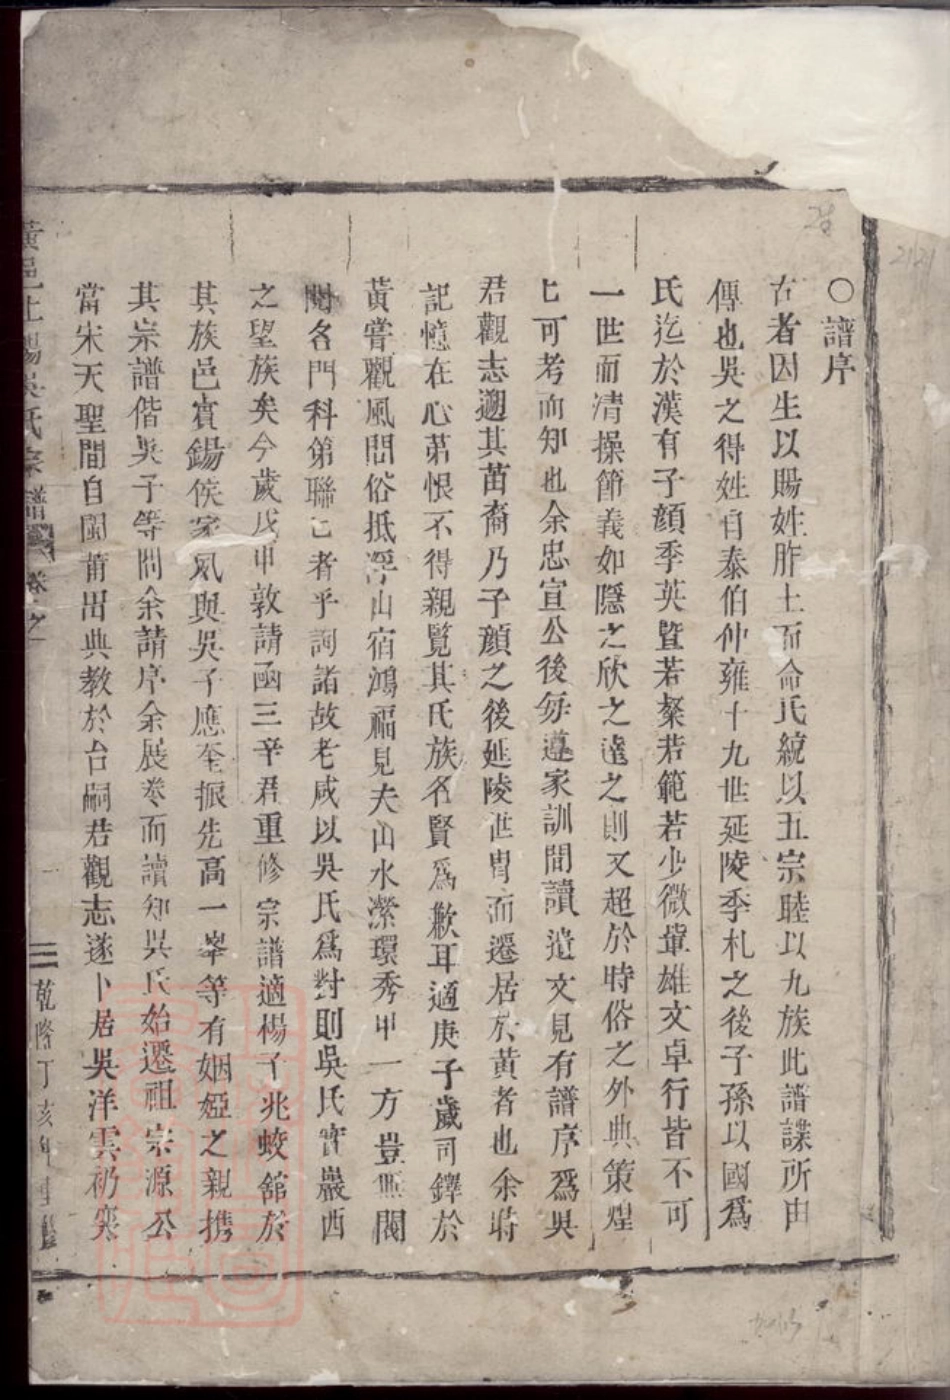 〇譜序
古者因生以賜姓胙土而命氏統以五宗睦以九族此譜諜所由
傳也吳之得姓自泰伯仲雍十九世延陵季札之後子孫以國爲
氏迄於漢有子顏季英暨若粲若範若少微輩雄文卓行皆不可
一世而清操節義如隱之欣之達之則又超於時俗之外典策煌
七可考而知也余忠宣公後每遵家訓間讀遺文見有譜序爲吳
君觀志遡其苗裔乃子顏之後延陵世冑而遷居於黃者也余時
記憶在心第恨不得親覽其氏族名賢爲歉耳適庚子歲司鐸於
黃嘗觀風問俗抵浮山宿鴻福見夫山水瀠環秀甲一方豈無閥
閱各門科第聯七者乎詢諸故老咸以吳氏爲對則吳氏實巖西
之望族矣今歲戊申敦請函三辛君重修宗譜適楊子兆蛟舘於
其族邑賓錫侯家夙與吳子應奎振先高一峯等有姻婭之親携
其宗譜偕吳子等問余請序余展卷而讀知吳氏始遷祖宗源公
當宋天聖間自閩莆出典教於台嗣君觀志遂卜居吳洋雲礽寖
黃邑上吳氏宗譜 卷之一 三 乾隆丁亥年重